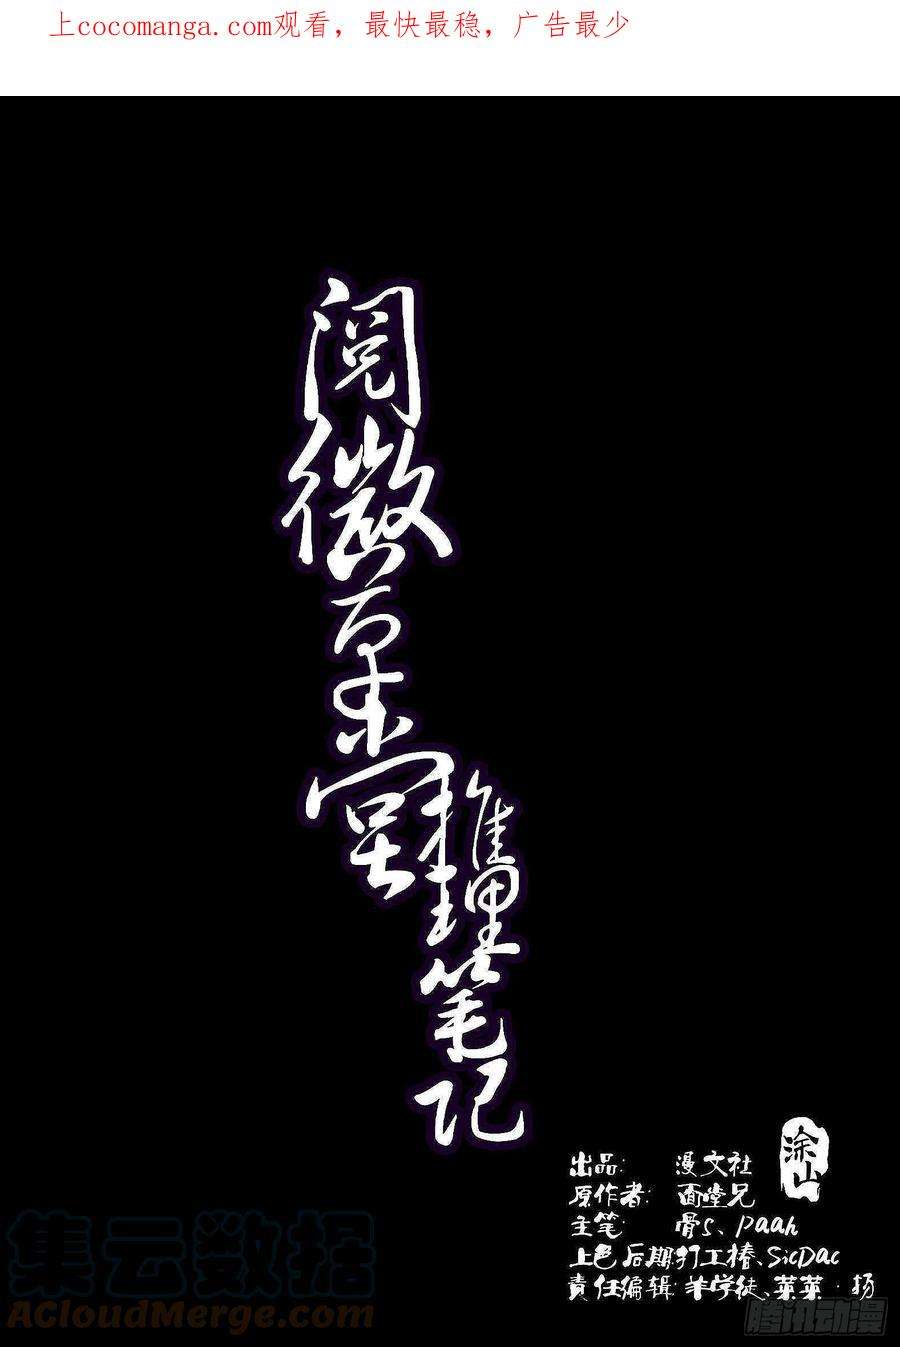 上cocomanga.com观看，最快最稳，广告最少
阅微草堂
推理笔记
涂山
出品: 漫文社
原作者: 面堂兄
主笔: 骨S、paah
上色后期:打工椿、SicDac
責任编辑:羊学徒、菜菜·扬
集云数据
ACloudMerge.com
腾讯动漫